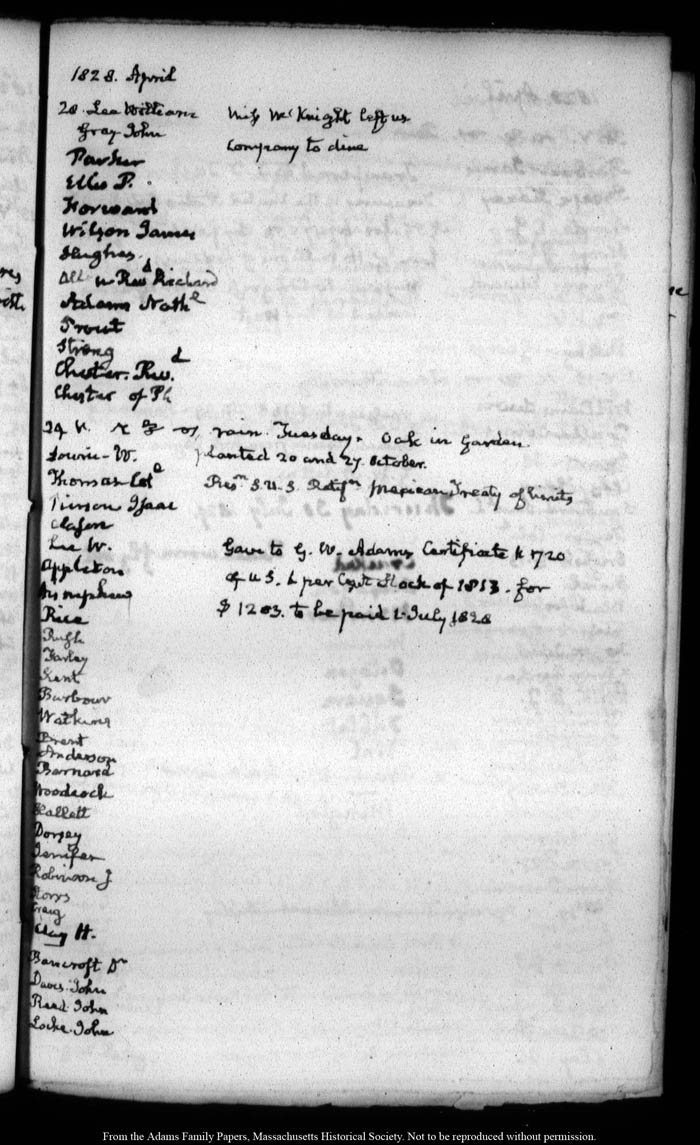 1828. April
28. Lea William Miss McKnight left us
Gray John Company to dine
Parker
Ellis P.
Forward
Wilson James
Hughes
Rev.d Richard
Adams Nath.l
Prout
Strong
Chester. Rev.d
Chester of Ph
29 V. rain. Tuesday. Oak in Garden
W. planted 20 and 27. October.
Thomas Col.l S.U.S. Mexican Treaty of Limits
Isaac
Clason
Lee W. Gave to G. W. Adams Certificate N 1720
Appleton of U S. 6 per Cent Stock of 1813. for
Humphrey $ 1203. to be paid 1. July 1828
Rice
Pugh
Farley
Kent
Barbour
Watkins
Brent
Anderson
Barnard
Woodcock
Hallett
Dorsey
Jenifer
Robinson J
Storrs
Craig
Clay H.
Bancroft Dr
Davis. John
Reed. John
Locke. John
From the Adams Family Papers, Massachusetts Historical Society. Not to be reproduced without permission.